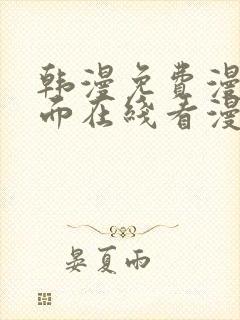 韩漫免费漫
而在线看漫
晏夏雨